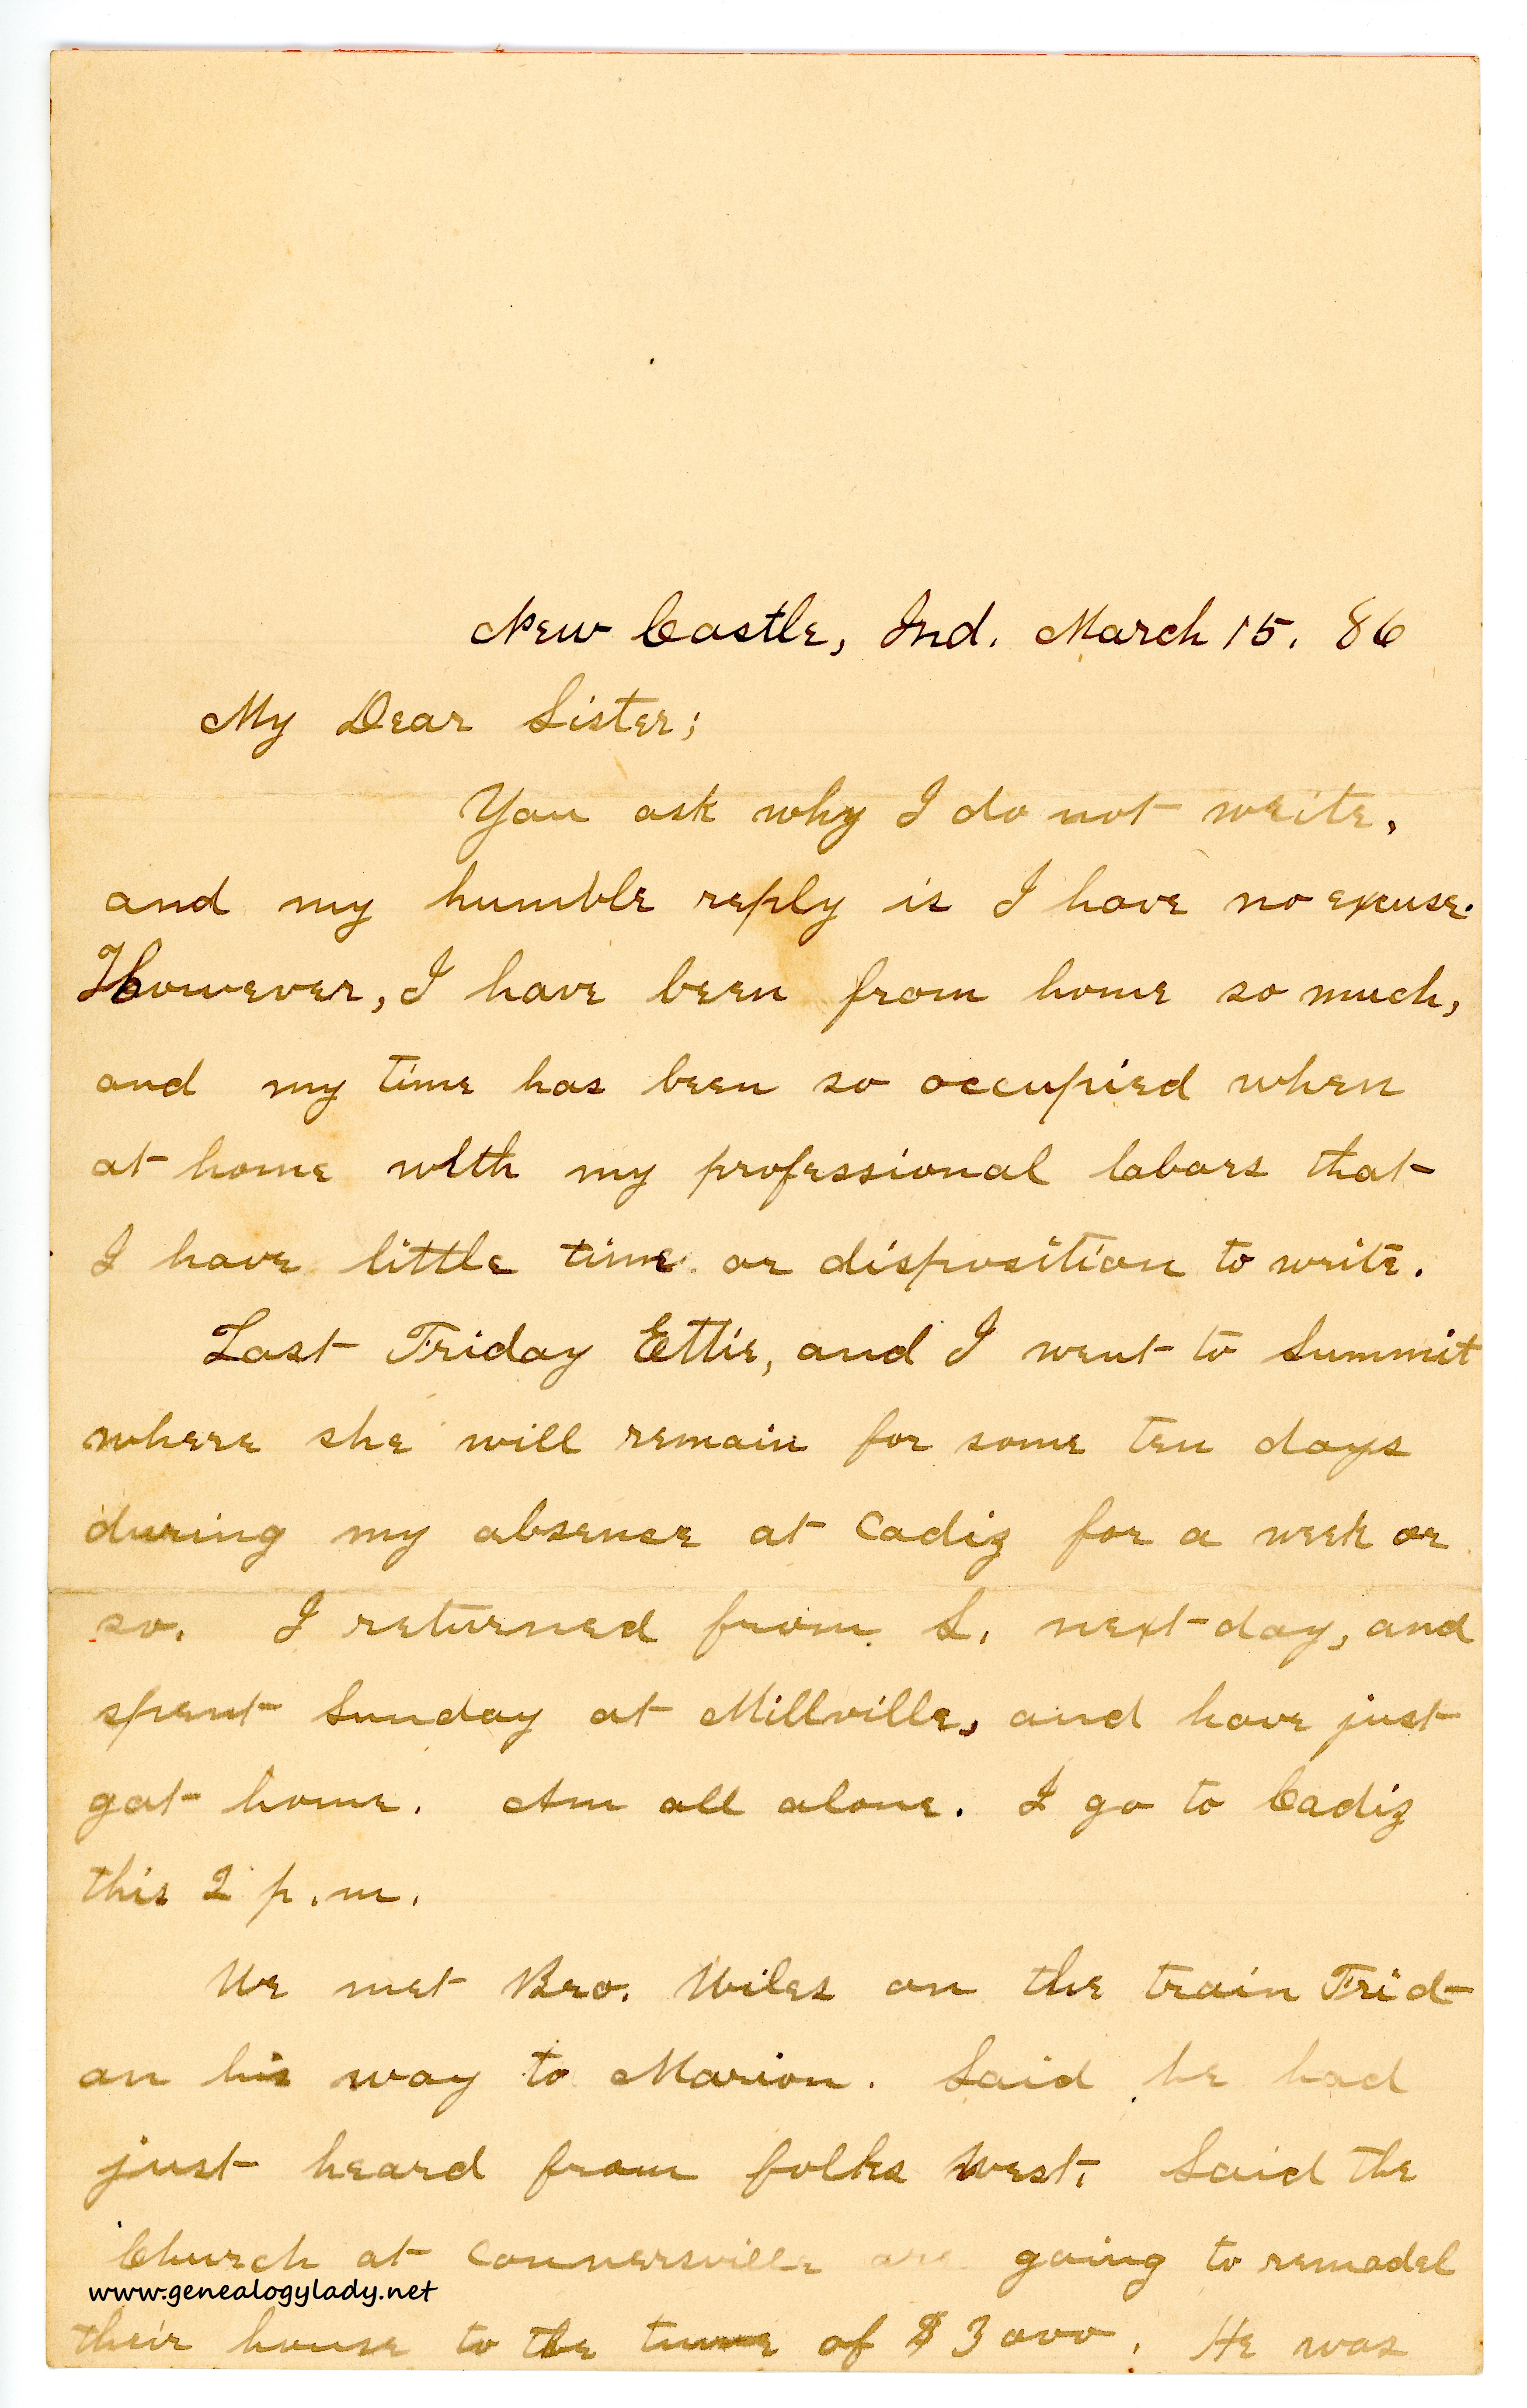 New Castle, Ind. March 15. 86
My Dear Sister;
You ask why I do not write,
and my humble reply is I have no excuse.
However, I have been from home so much,
and my time has been so occupied when
at home with my professional labors that
I have little time or disposition to write.
Last Friday Ettie, and I went to Summit
where she will remain for some ten days
during my absence at Cadiz for a week or
so. I returned from S. next day, and
spent Sunday at Millville, and have just
got home. Am all alone. I go to Cadiz
this 2 p.m.
We met Bro. Wiles on the train Frid-
on his way to Marion. Said he had
just heard from folks West. Said the
Church at Connersville are going to remodel
www.genealogylady.net
their house to the tune of $3000. He was